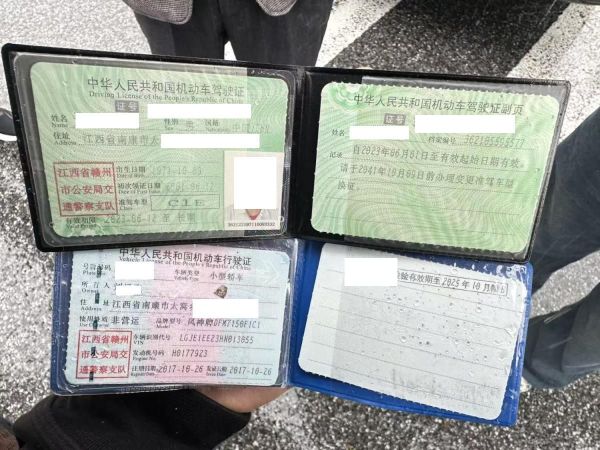 中华人民共和国机动车驾驶证
Driving License of the People's Republic of China
证号
姓名
Name
性别
国籍
住址
Address
江西省南康市太
江西省赣州
市公安局交
通警察支队
出生日期
初次领证日期
准驾车型
C1E
有效期限
至 长期
中华人民共和国机动车驾驶证副页
姓名
档案编号
记录
自2023年06月01日至有效起始日期有效。
请于2041年10月09日前办理变更准驾车型
换证。
中华人民共和国机动车行驶证
Vehicle License of the People's Republic of China
号牌号码
车辆类型
小型轿车
所有人
住址
江西省南康市太窝
使用性质
非营运
品牌型号
风神牌DFM7150F1C1
江西省赣州
市公安局交
通警察支队
车辆识别代号
VIN
LGJE1EE23HN013855
发动机号码
Engine No.
H0177923
注册日期
Register Date
2017-10-26
发证日期
Issue Date
2017-10-26
检验有效期至 2025 年 10 月